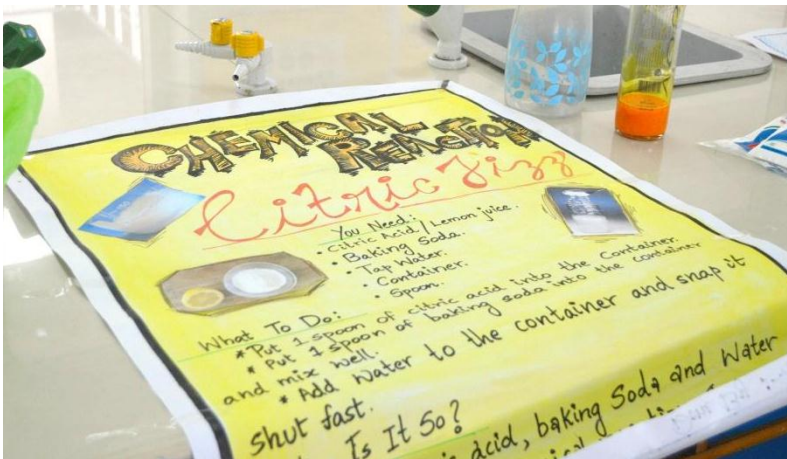 CHEMICAL
REACTION
Citric Fizz
You Need:
• Citric Acid / Lemon juice.
• Baking Soda.
• Tap Water.
• Container.
• Spoon.
What To Do:
* Put 1 spoon of citric acid into the Container.
* Put 1 spoon of baking soda into the container
and mix well.
* Add water to the container and snap it
shut fast.
Is It So?
acid, baking Soda and Water